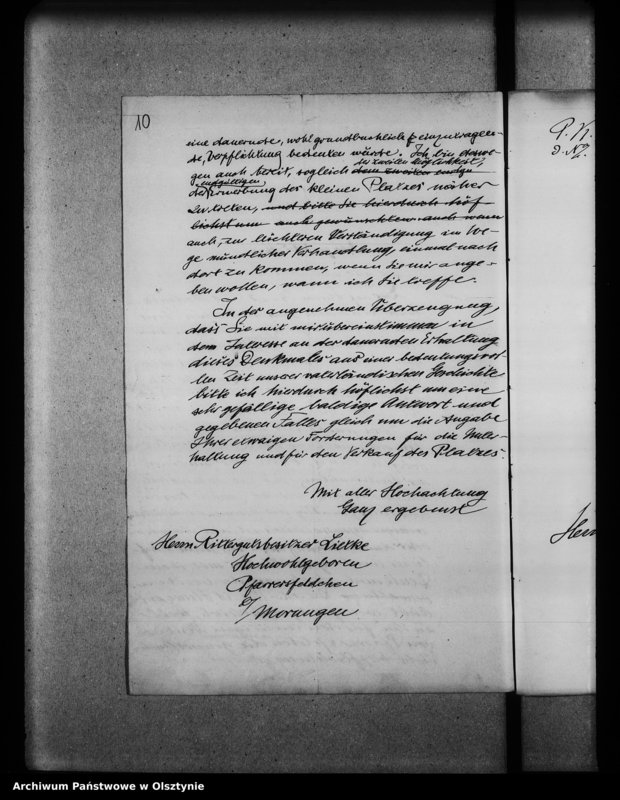 10
eine dauernde, wohl grundbuchlich einzutragen-
de, Verpflichtung bedeuten würde. Ich bin deswe-
der zweiten Möglichkeit,
gen auch bereit, sogleich dem zweiten
endgültigen
der Erwerbung des kleinen Platzes näher
zu treten, und bitte Sie hierdurch höf-
lichst um auch gewünschten auch wenn
auch, zur leichteren Verständigung im We-
ge mündlicher Verhandlung, einmal nach
dort zu kommen, wenn Sie mir ange-
ben wollen, wann ich Sie treffe.
In der angenehmen Überzeugung,
dass Sie mit mir übereinstimmen in
dem Interesse an der dauernden Erhaltung
dieses Denkmales aus einer bedeutungsvol-
len Zeit unserer vaterländischen Geschichte
bitte ich hierdurch höflichst um eine
sehr gefällige baldige Antwort und
gegebenen Falles gleich um die Angabe
Ihrer etwaigen Forderungen für die Unter-
haltung und für den Verkauf des Platzes.
Mit aller Hochachtung
Ganz ergebenst
Herrn Rittergutsbesitzer Lietke
Hochwohlgeboren
Pfarrersfeldchen
b/ Mohrungen
P. K.
J. No
Herr
Archiwum Państwowe w Olsztynie